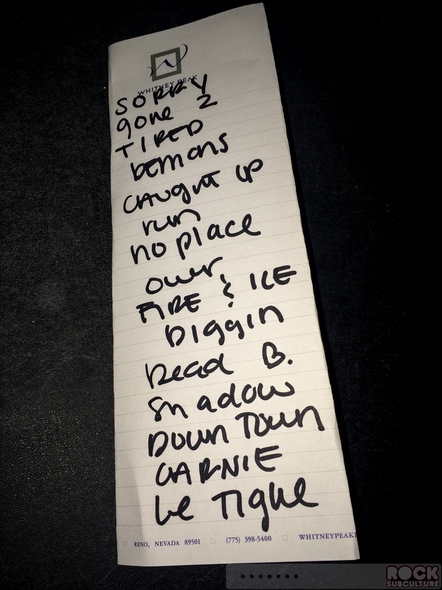 WHITNEY PEAK
SORRY
gone 2
TIRED
Demons
CAUGHT UP
run
no place
over
FIRE & ICE
Diggin
Dead B.
Shadow
DOWNTOWN
CARNIE
Le TIGRE
RENO, NEVADA 89501 (775) 398-5400 WHITNEYPEAK
ROCK
SUBCULTURE